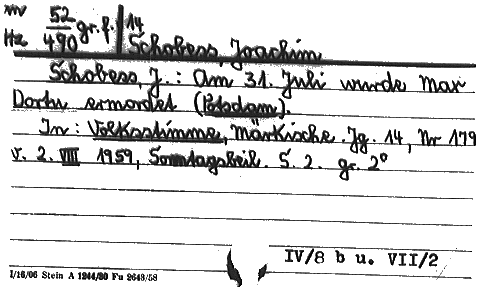 nv 52/490 gr. f. 14
Hz Schobess, Joachim
Schobess, J.: Am 31. Juli wurde Max
Dortu ermordet (Potsdam).
In: Volksstimme, Märkische. Jg. 14, Nr 179
v. 2. VIII 1959, Sonntagsbeil. S. 2. gr. 2°
IV/8 b u. VII/2
I/16/06 Stein A 1244/50 Fu 2643/58